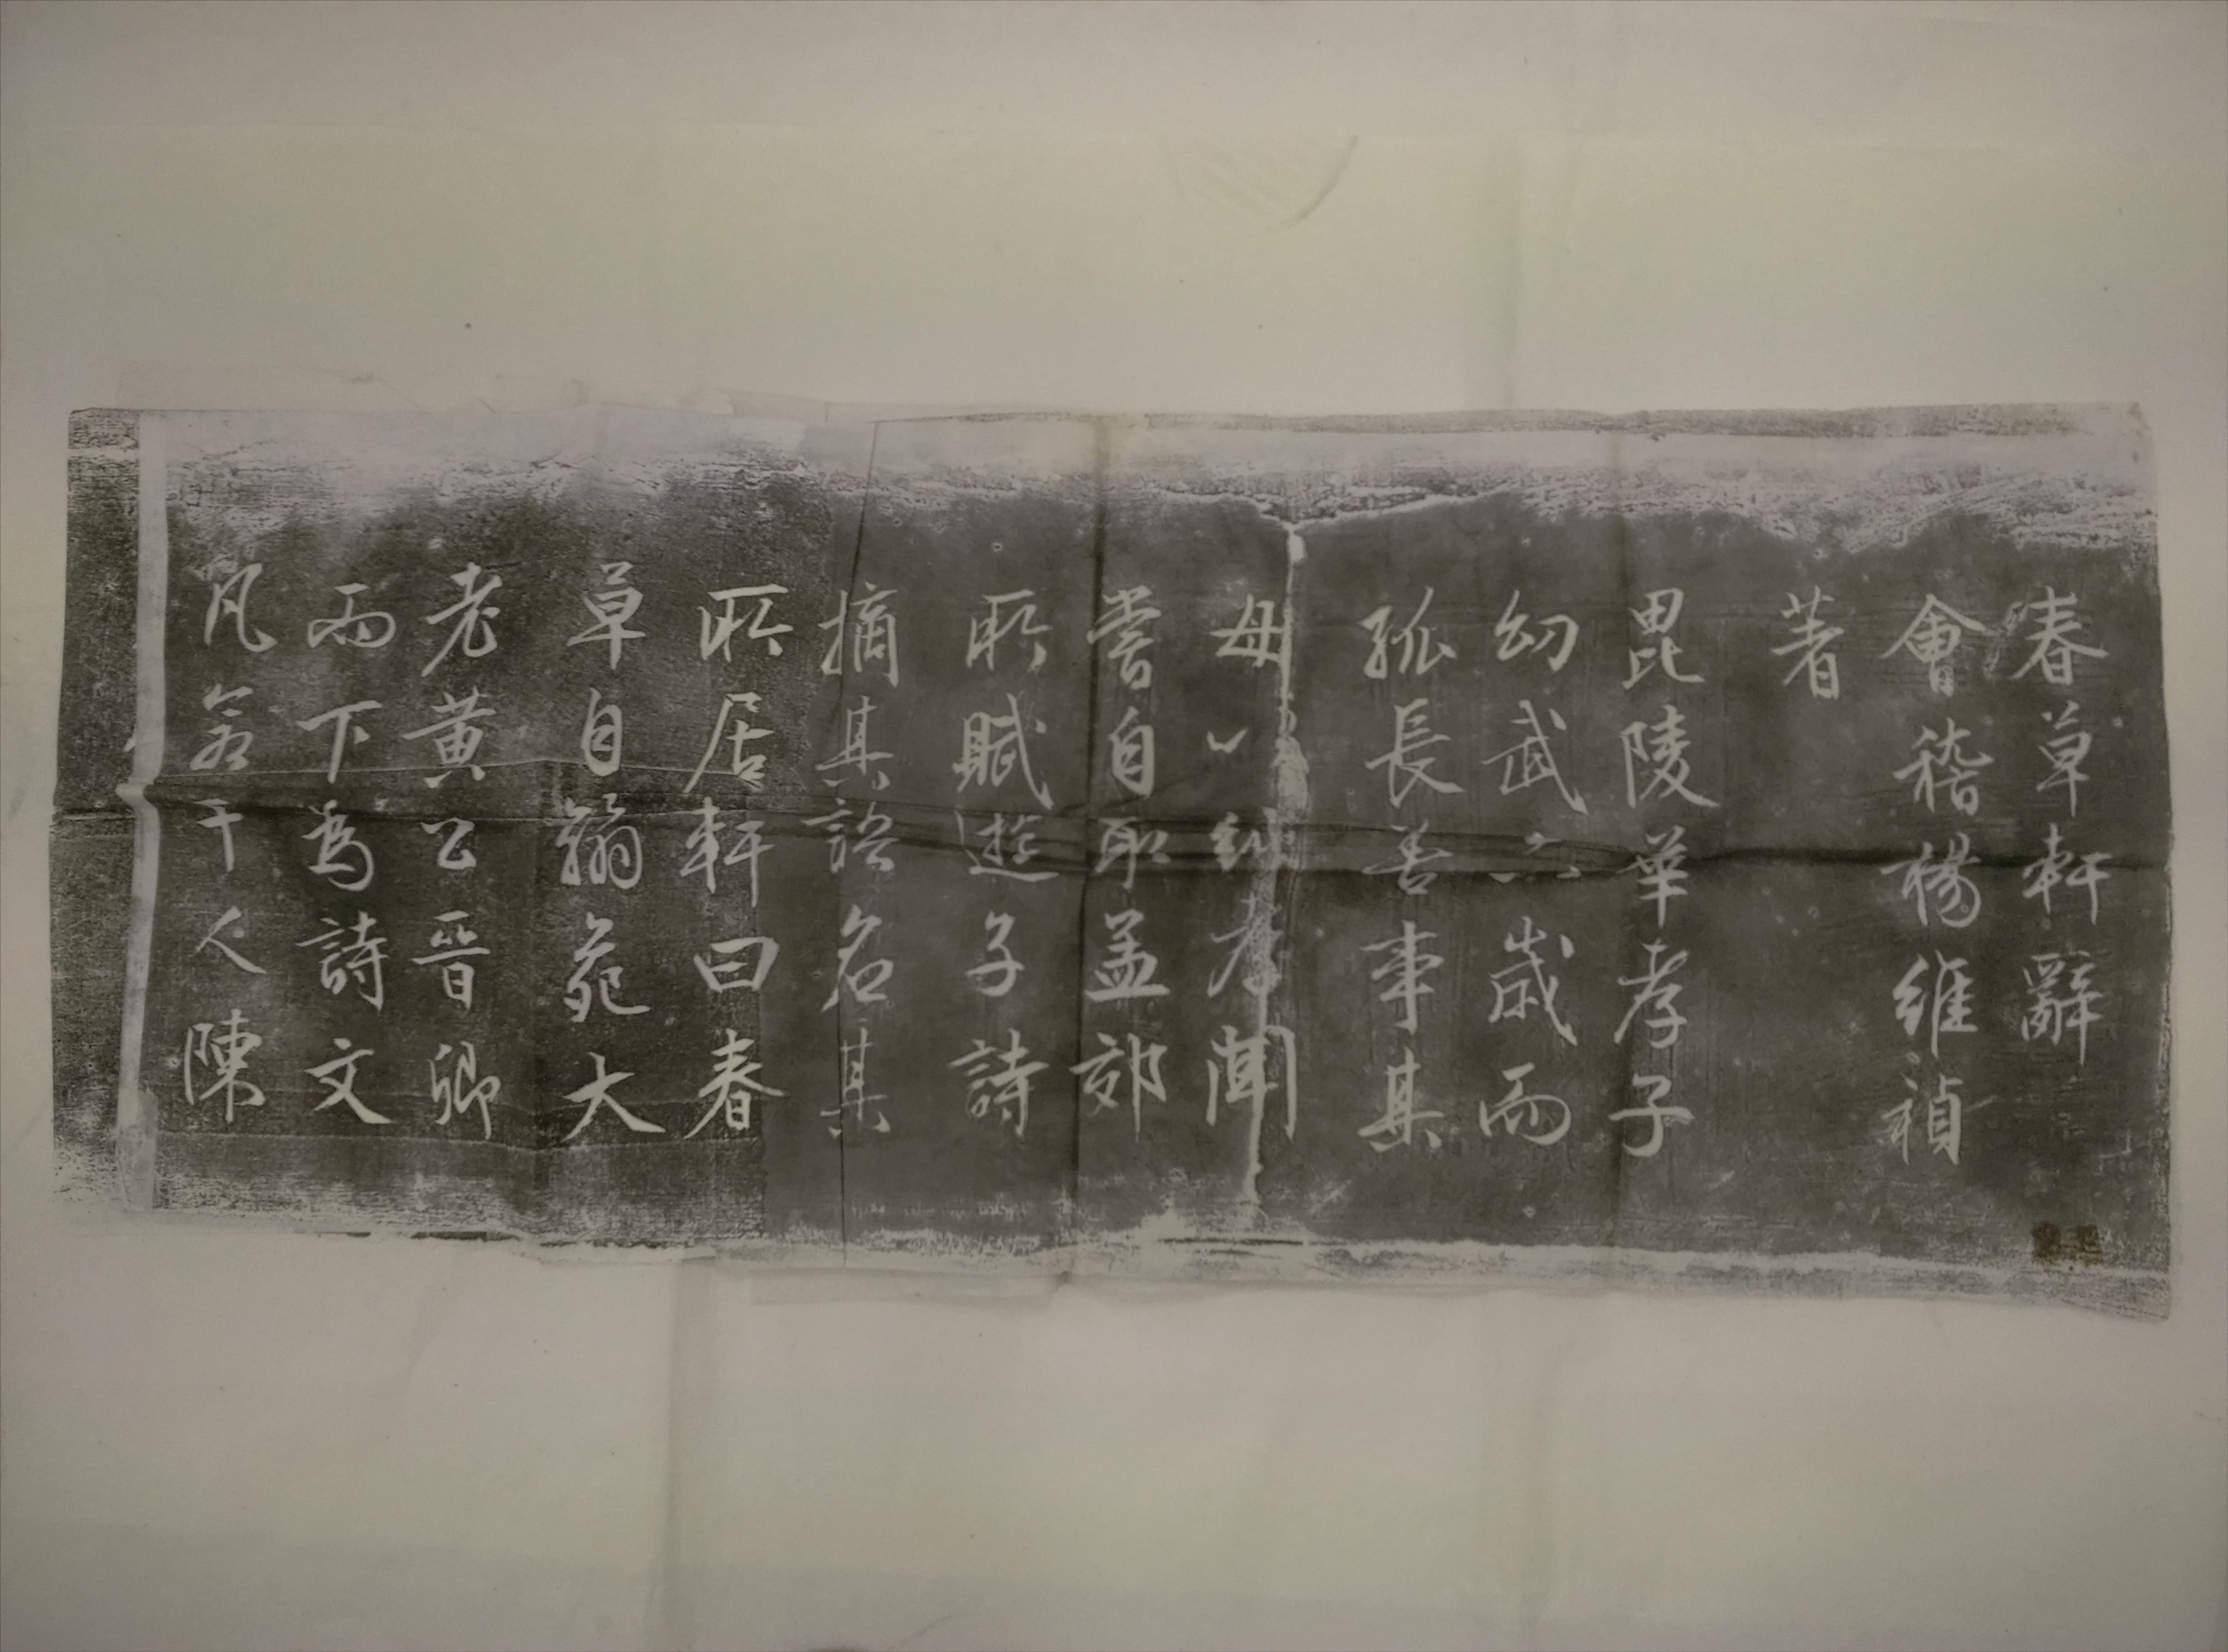 春草軒辭
會稽楊維禎
著
毘陵華孝子
幼武六歲而
孤長善事其
母以純孝聞
嘗自取孟郊
所賦遊子詩
摘其語名其
所居軒曰春
草自翰苑大
老黃公晉卿
而下為詩文
凡若干人陳